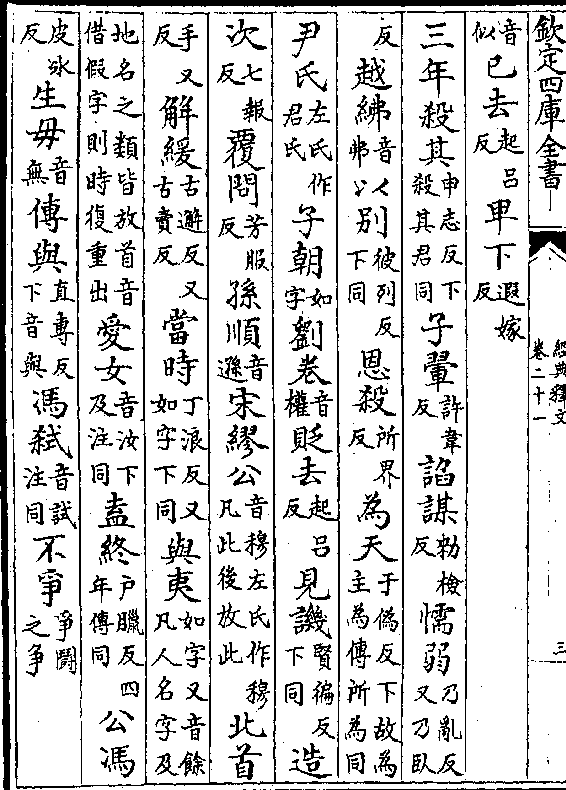 欽定四庫全書
經典釋文
卷二十一
三
音似已去起呂反甲下遐嫁反
三年殺其申志反下殺其君同子翬許韋反諂謀勑檢反懦弱乃亂反又乃臥
反越紼音弗以別彼列反下同恩殺所界反為天于偽反下故為主為傳所為同
尹氏左氏作君氏子朝如字劉卷音權貶去起呂反見譏賢徧反下同造
次七報反覆問芳服反孫順音遜宋繆公音穆左氏作穆凡此後放此北首
手又反解緩古邂反又古賣反當時丁浪反又如字下同與夷如字又音餘凡人名字及
地名之類皆放首音借假字則時復重出愛女音汝下及注同盍終戶臘反四年傳同公馮
皮冰反生毋音無傳與直專反下音與馮弑音試注同不爭爭鬭之爭